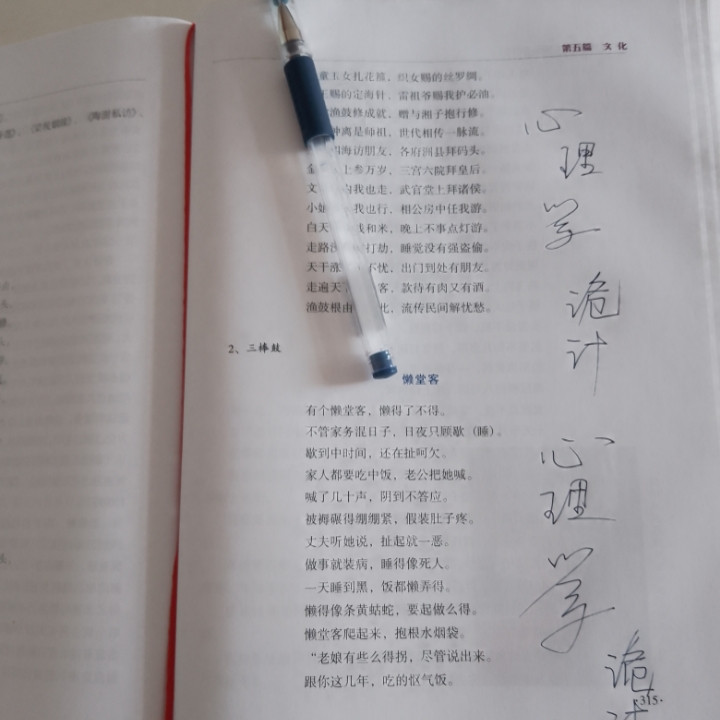 第五篇 文化
童玉女扎花篮，织女赐的丝罗绸。
赐的定海针，雷祖爷赐我护必油。
渔鼓修成就，赠与湘子抱行修。
钟离是师祖，世代相传一脉流。
四海访朋友，各府州县拜码头。
金 上参万岁，三宫六院拜皇后。
文 我也走，武官堂上拜诸侯。
小 我也行，相公房中任我游。
白天 钱和米，晚上不事点灯游。
走路 打劫，睡觉没有强盗偷。
天干涨 不忧，出门到处有朋友。
走遍天 客，款待有肉又有酒。
渔鼓根由 此，流传民间解忧愁。
2、三棒鼓
懒堂客
有个懒堂客，懒得了不得。
不管家务混日子，日夜只顾歇（睡）。
歇到中时间，还在扯呵欠。
家人都要吃中饭，老公把她喊。
喊了几十声，阴到不答应。
被褥碾得绷绷紧，假装肚子疼。
丈夫听她说，扯起就一恶。
做事就装病，睡得像死人。
一天睡到黑，饭都懒弄得。
懒得像条黄蛄蛇，要起做么得。
懒堂客爬起来，抱根水烟袋。
“老娘有些么得拐，尽管说出来。
跟你这几年，吃的怄气饭。
·315·
心
理
学
诡
计
心
理
学
诡
计